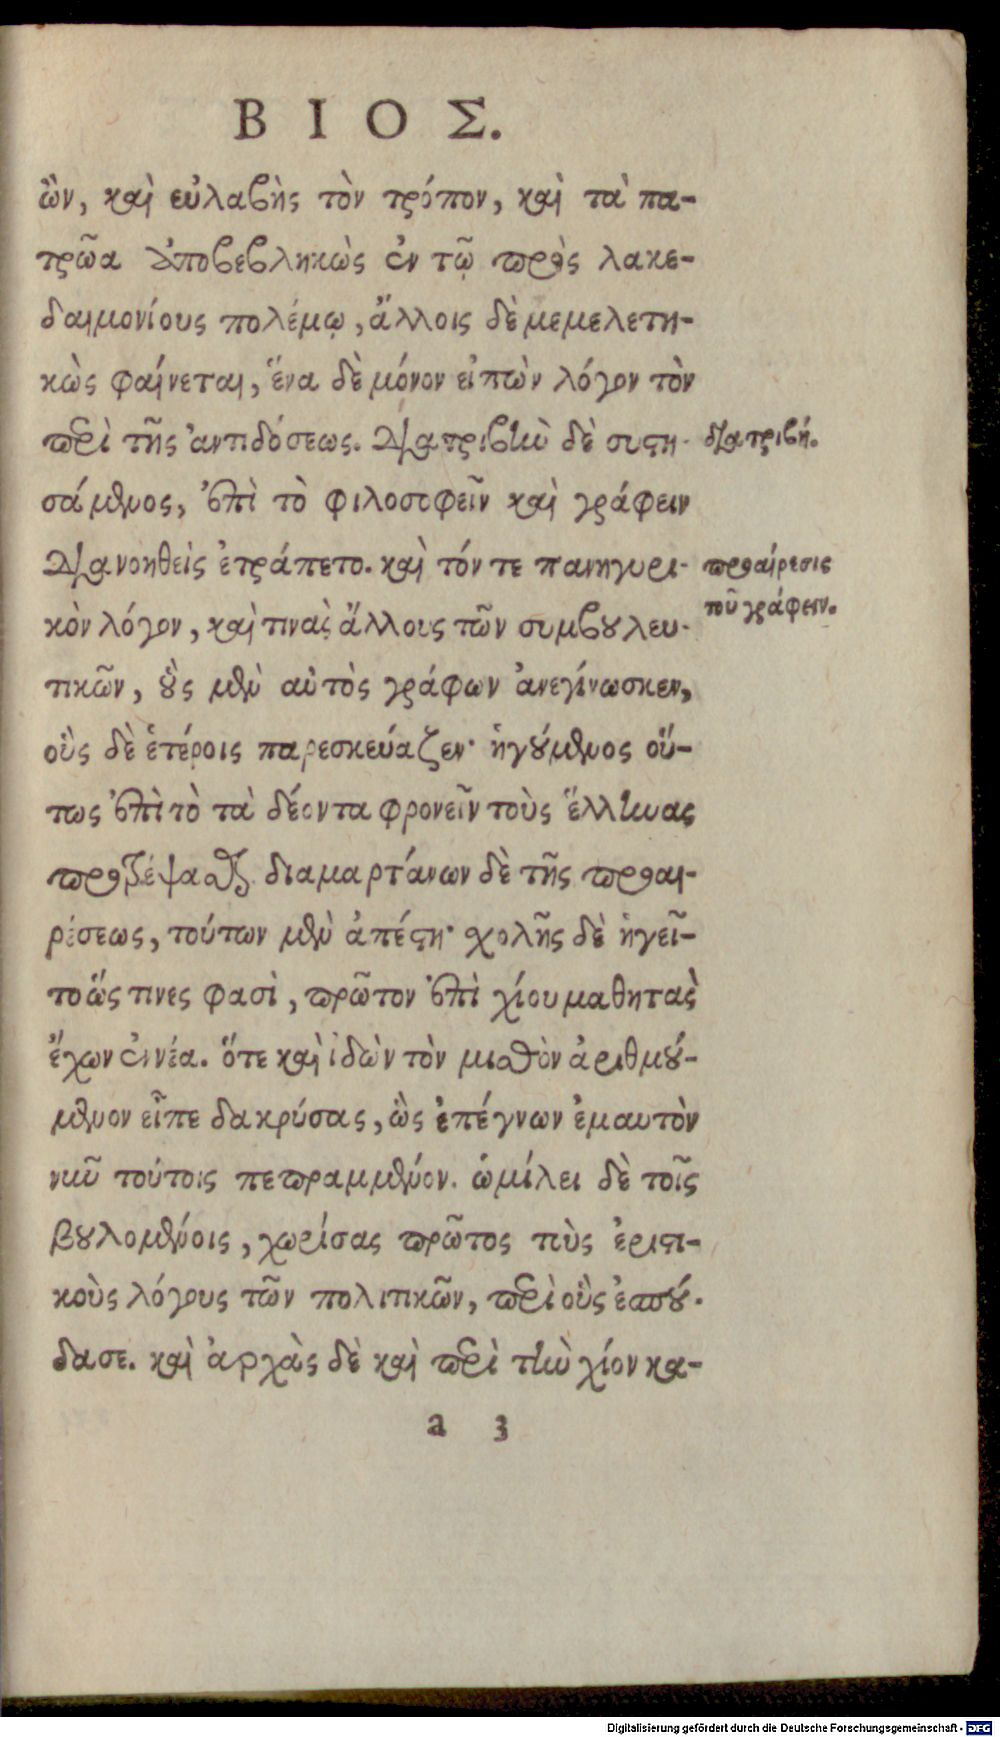 ΒΙΟΣ.
ὢν, καὶ εὐλαβὴς τὸν τρόπον, καὶ τὰ πα-
τρῶα ὑποβεβληκὼς ἐν τῷ πρὸς λακε-
δαιμονίους πολέμῳ, ἄλλοις δὲ μεμελετη-
κὼς φαίνεται, ἕνα δὲ μόνον εἰπὼν λόγον τὸν
περὶ τῆς ἀντιδόσεως. Διατριβὴν δὲ συστη-
διατριβή.
σάμενος, ἐπὶ τὸ φιλοσοφεῖν καὶ γράφειν
διανοηθεὶς ἐτράπετο. καὶ τόν τε πανηγυρι-
προαίρεσις
κὸν λόγον, καὶ τινὰς ἄλλους τῶν συμβουλευ-
τοῦ γράφειν.
τικῶν, οὓς μὲν αὐτὸς γράφων ἀνεγίνωσκεν,
οὓς δὲ ἑτέροις παρεσκεύαζεν· ἡγούμενος οὕ-
τως ἐπὶ τὸ τὰ δέοντα φρονεῖν τοὺς ἕλληνας
προτρέψασθαι. διαμαρτάνων δὲ τῆς προαι-
ρέσεως, τούτων μὲν ἀπέστη· χολῆς δὲ ἡγεῖ-
το ὥς τινες φασὶ, πρῶτον ἐπὶ χίου μαθητὰς
ἔχων ἐννέα. ὅτε καὶ ἰδὼν τὸν μισθὸν ἀριθμού-
μενον εἶπε δακρύσας, ὡς ἐπέγνων ἐμαυτὸν
νῦν τούτοις πεπραμμένον. ὡμίλει δὲ τοῖς
βουλομένοις, χωρίσας πρῶτος τοὺς ἐριστι-
κοὺς λόγους τῶν πολιτικῶν, περὶ οὓς ἐσπού-
δασε. καὶ ἀρχὰς δὲ καὶ περὶ τὴν χίον κα-
a 3
Digitalisierung gefördert durch die Deutsche Forschungsgemeinschaft - DFG